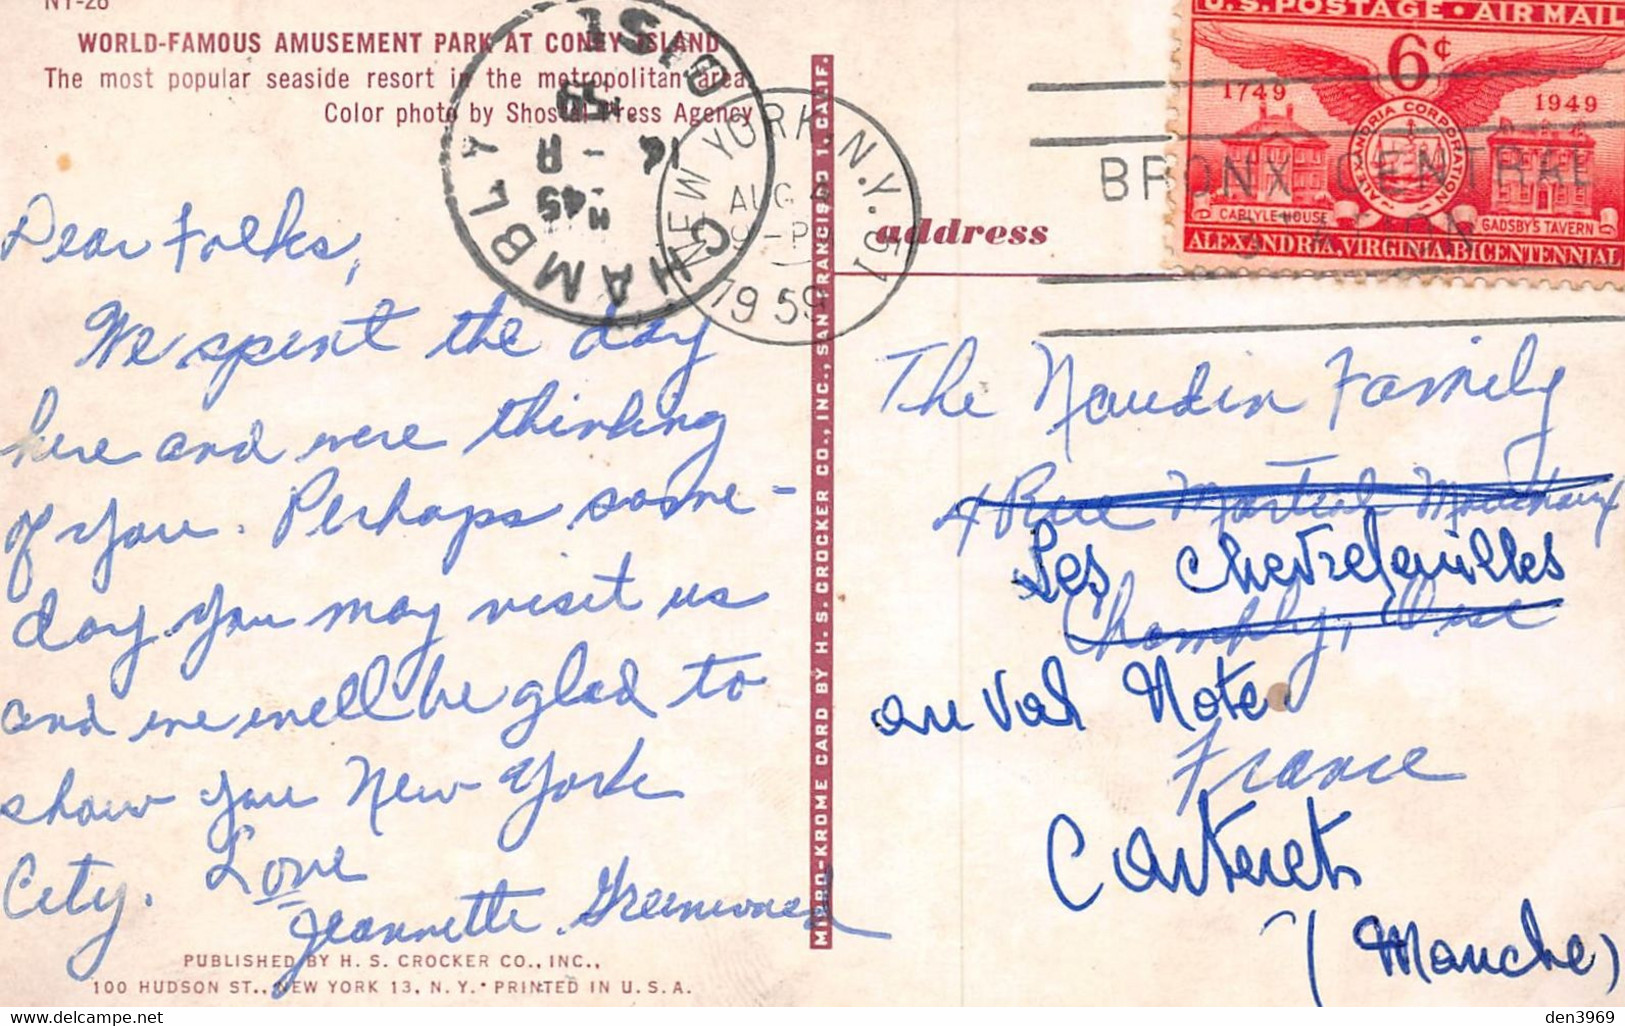 NY-26
WORLD-FAMOUS AMUSEMENT PARK AT CONEY ISLAND
The most popular seaside resort in the metropolitan area
Color photo by Shostal Press Agency
Dear Folks,
We spent the day
here and were thinking
of you. Perhaps some-
day you may visit us
and we well be glad to
show you New York
City. Love
Jeannette Greenwood
PUBLISHED BY H. S. CROCKER CO., INC.,
100 HUDSON ST., NEW YORK 13, N. Y. • PRINTED IN U. S. A.
CHAMBLY
OISE
16 - 8
59
NEW YORK, N.Y.
AUG 4
9-PM
1959
MIRRO-KROME CARD BY H. S. CROCKER CO., INC., SAN FRANCISCO 1, CALIF.
address
U.S. POSTAGE • AIR MAIL
6¢
1749
1949
ALEXANDRIA CORPORATION
CARLYLE HOUSE
GADSBY'S TAVERN
ALEXANDRIA, VIRGINIA, BICENTENNIAL
BRONX CENTRAL
STATION
The Naudin Family
4 Rue Martial
Les
Chambly, Oise
au Val Note
France
Carteret
(Manche)
delcampe.net
den3969